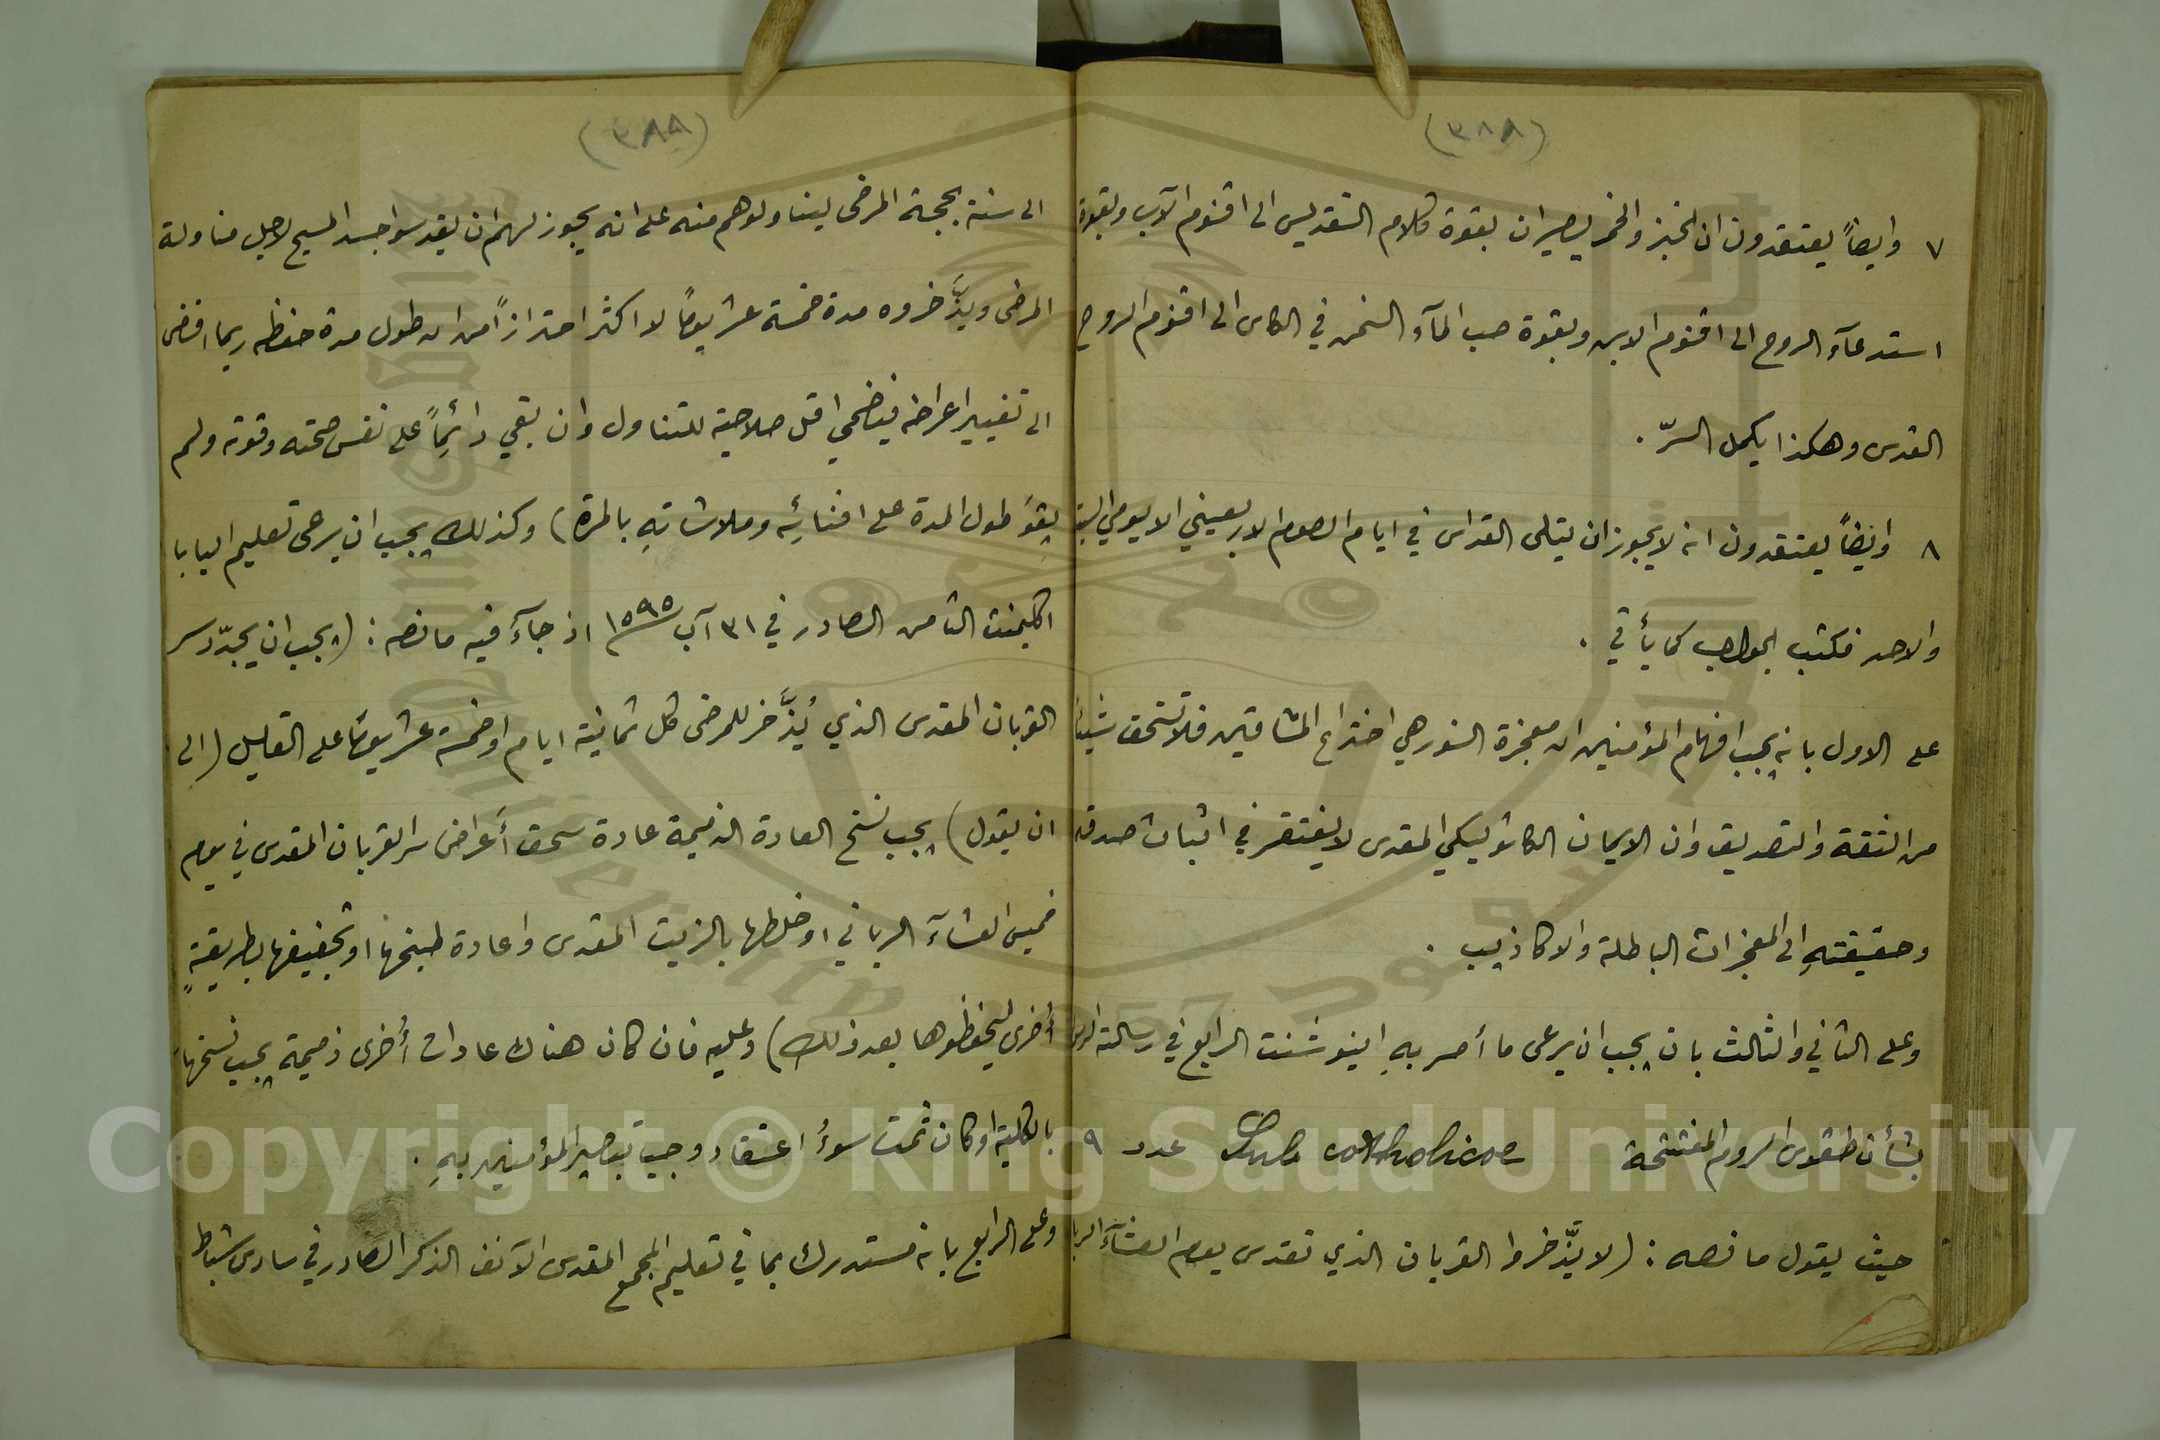 (٣٨٨)
٧ وايضاً يعتقدون ان الخبز والخمر يصيران بقوة كلام التقديس الى اقنوم الآب وبقوة
استدعآء الروح الى اقنوم الابن وبقوة صب المآء السخن في الكاس الى اقنوم الروح
القدس وهكذا يكمل السرّ .
٨ وايضاً يعتقدون انه لا يجوز ان يتلى القداس في ايام الصوم الاربعيني الا يومي السبت
والاحد فكتب الجواب كما يأتي .
على الاول بانه يجب افهام المؤمنين ان معجزة النور هي اختراع المشاقين فلا تستحق شيئاً
من الثقة والتصديق وان الايمان الكاثوليكي المقدس لا يفتقر في اثبات صدقه
وحقيقتهِ الى المعجزات الباطلة والاكاذيب .
وعلى الثاني والثالث بان يجب ان يرعى ما أمر بهِ اينوشنت الرابع في رسالته
بشأن طقوس الروم المفتتحة Sub catholicae عدد ٩
حيث يقول ما نصه : (لا يذّخروا القربان الذي تقدس يوم العشآء
(٣٨٩)
الى سنة بحجة المرضى ليناولوهم منه على انه يجوز لهم ان يقدسوا جسد المسيح لاجل مناولة
المرضى ويذَّخروه مدة خمسة عشر يوماً لا اكثر احترازاً من ان طول مدة حفظه ربما افضى
الى تغيير اعراضه فيضحي اقل صلاحية للتناول وان بقي دائماً على نفس صحته وقوته ولم
يقوَ طول المدة على افنائِه وملاشاتهِ بالمرة) وكذلك يجب ان يرعى تعليم البابا
اكليمنت الثامن الصادر في ٣١ آب ١٥٩٥ اذ جآء فيه ما نصه : (يجب ان يجدّد سر
القربان المقدس الذي يُذَّخر للمرضى كل ثمانية ايام او خمسة عشر يوماً على القليل (الى
ان يقول) يجب نسخ العادة الذميمة عادة سحق أعراض سر القربان المقدس في يوم
خميس العشآء الرباني او خلطها بالزيت المقدس واعادة طبخها او تجفيفها بطريقةٍ
أخرى ليحفظوها بعد ذلك) وعليه فان كان هناك عادات أخرى ذميمة يجب نسخها
بالكلية او كان ثمت سوءُ اعتقاد وجب تبصير المؤمنين بهِ .
وعلى الرابع بانه مستدرك بما في تعليم المجمع المقدس الآنف الذكر الصادر في سادس شباط
Copyright © King Saud University